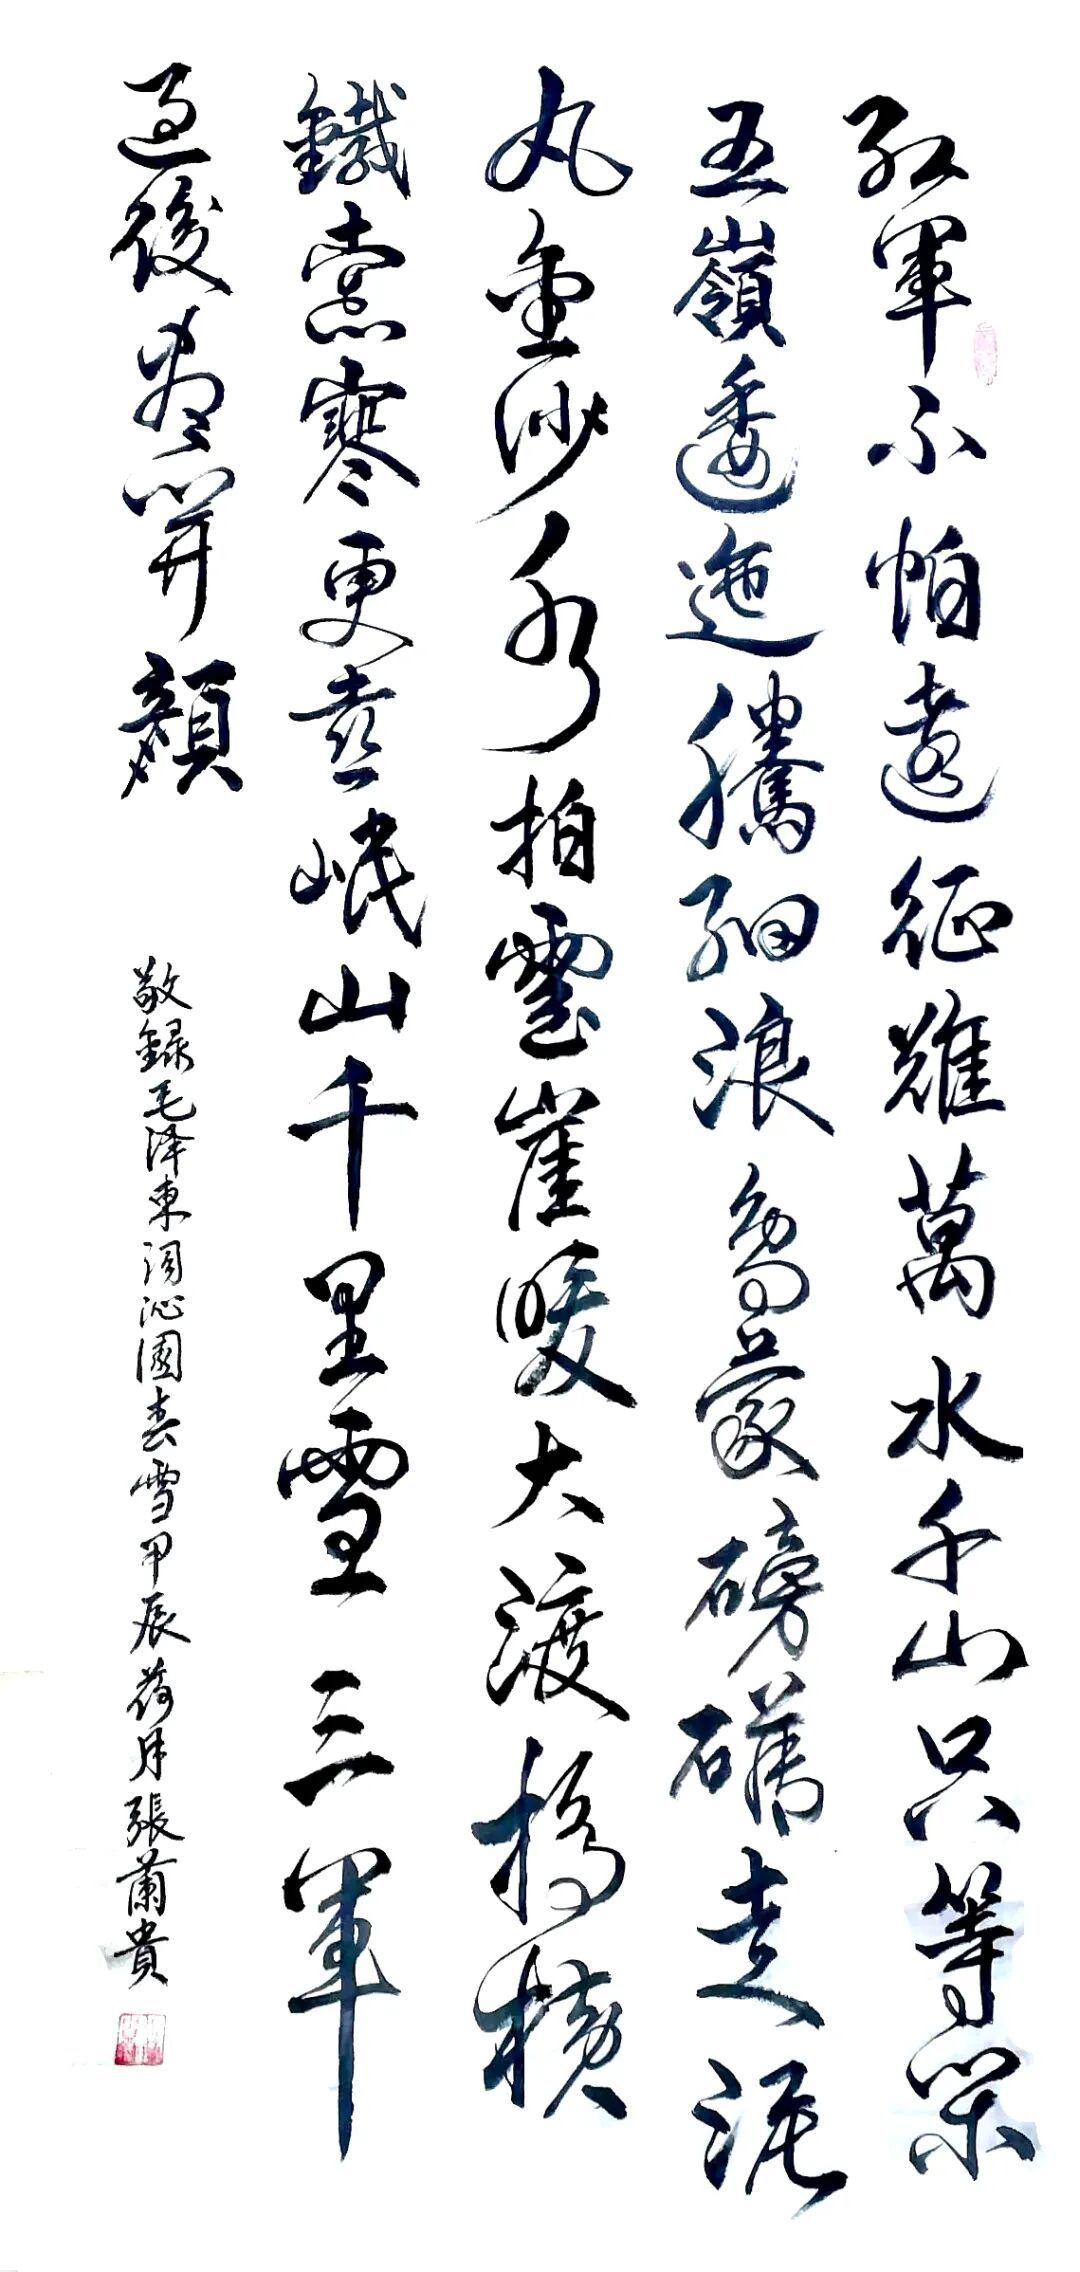 紅軍不怕遠征難萬水千山只等閑
五嶺逶迤騰細浪烏蒙磅礴走泥
丸金沙水拍雲崖暖大渡橋橫
鐵索寒更喜岷山千里雪三軍
過後盡開顏
敬録毛泽東词沁園春雪甲辰荷月張蘭貴